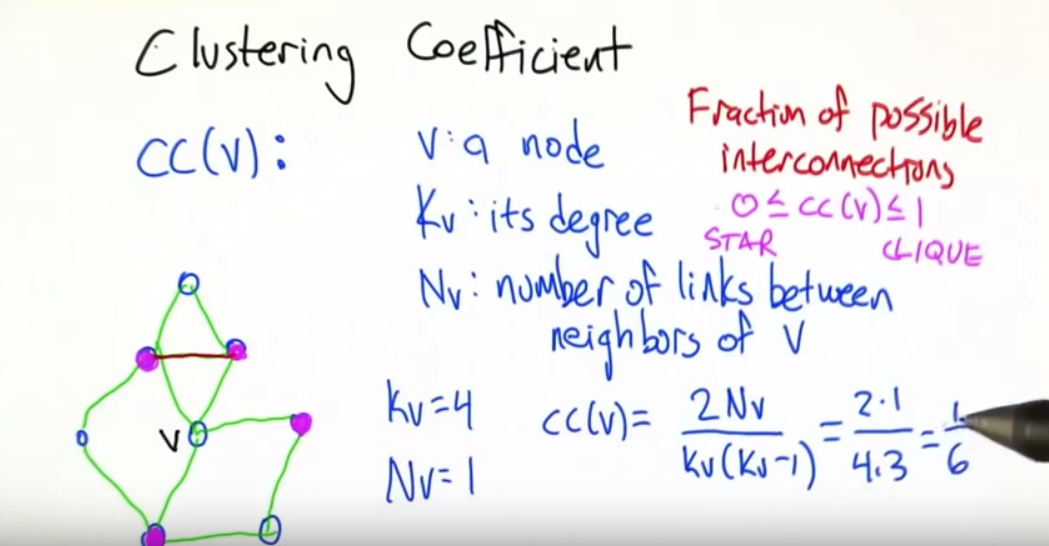 Clustering Coefficient
CC(v):
v: a node
Kv: its degree
Nv: number of links between
neighbors of v
Fraction of possible
interconnections
0 ≤ CC(v) ≤ 1
STAR CLIQUE
v
Kv=4
Nv=1
CC(v) = 2Nv / Kv(Kv-1) = 2·1 / 4·3 = 1/6